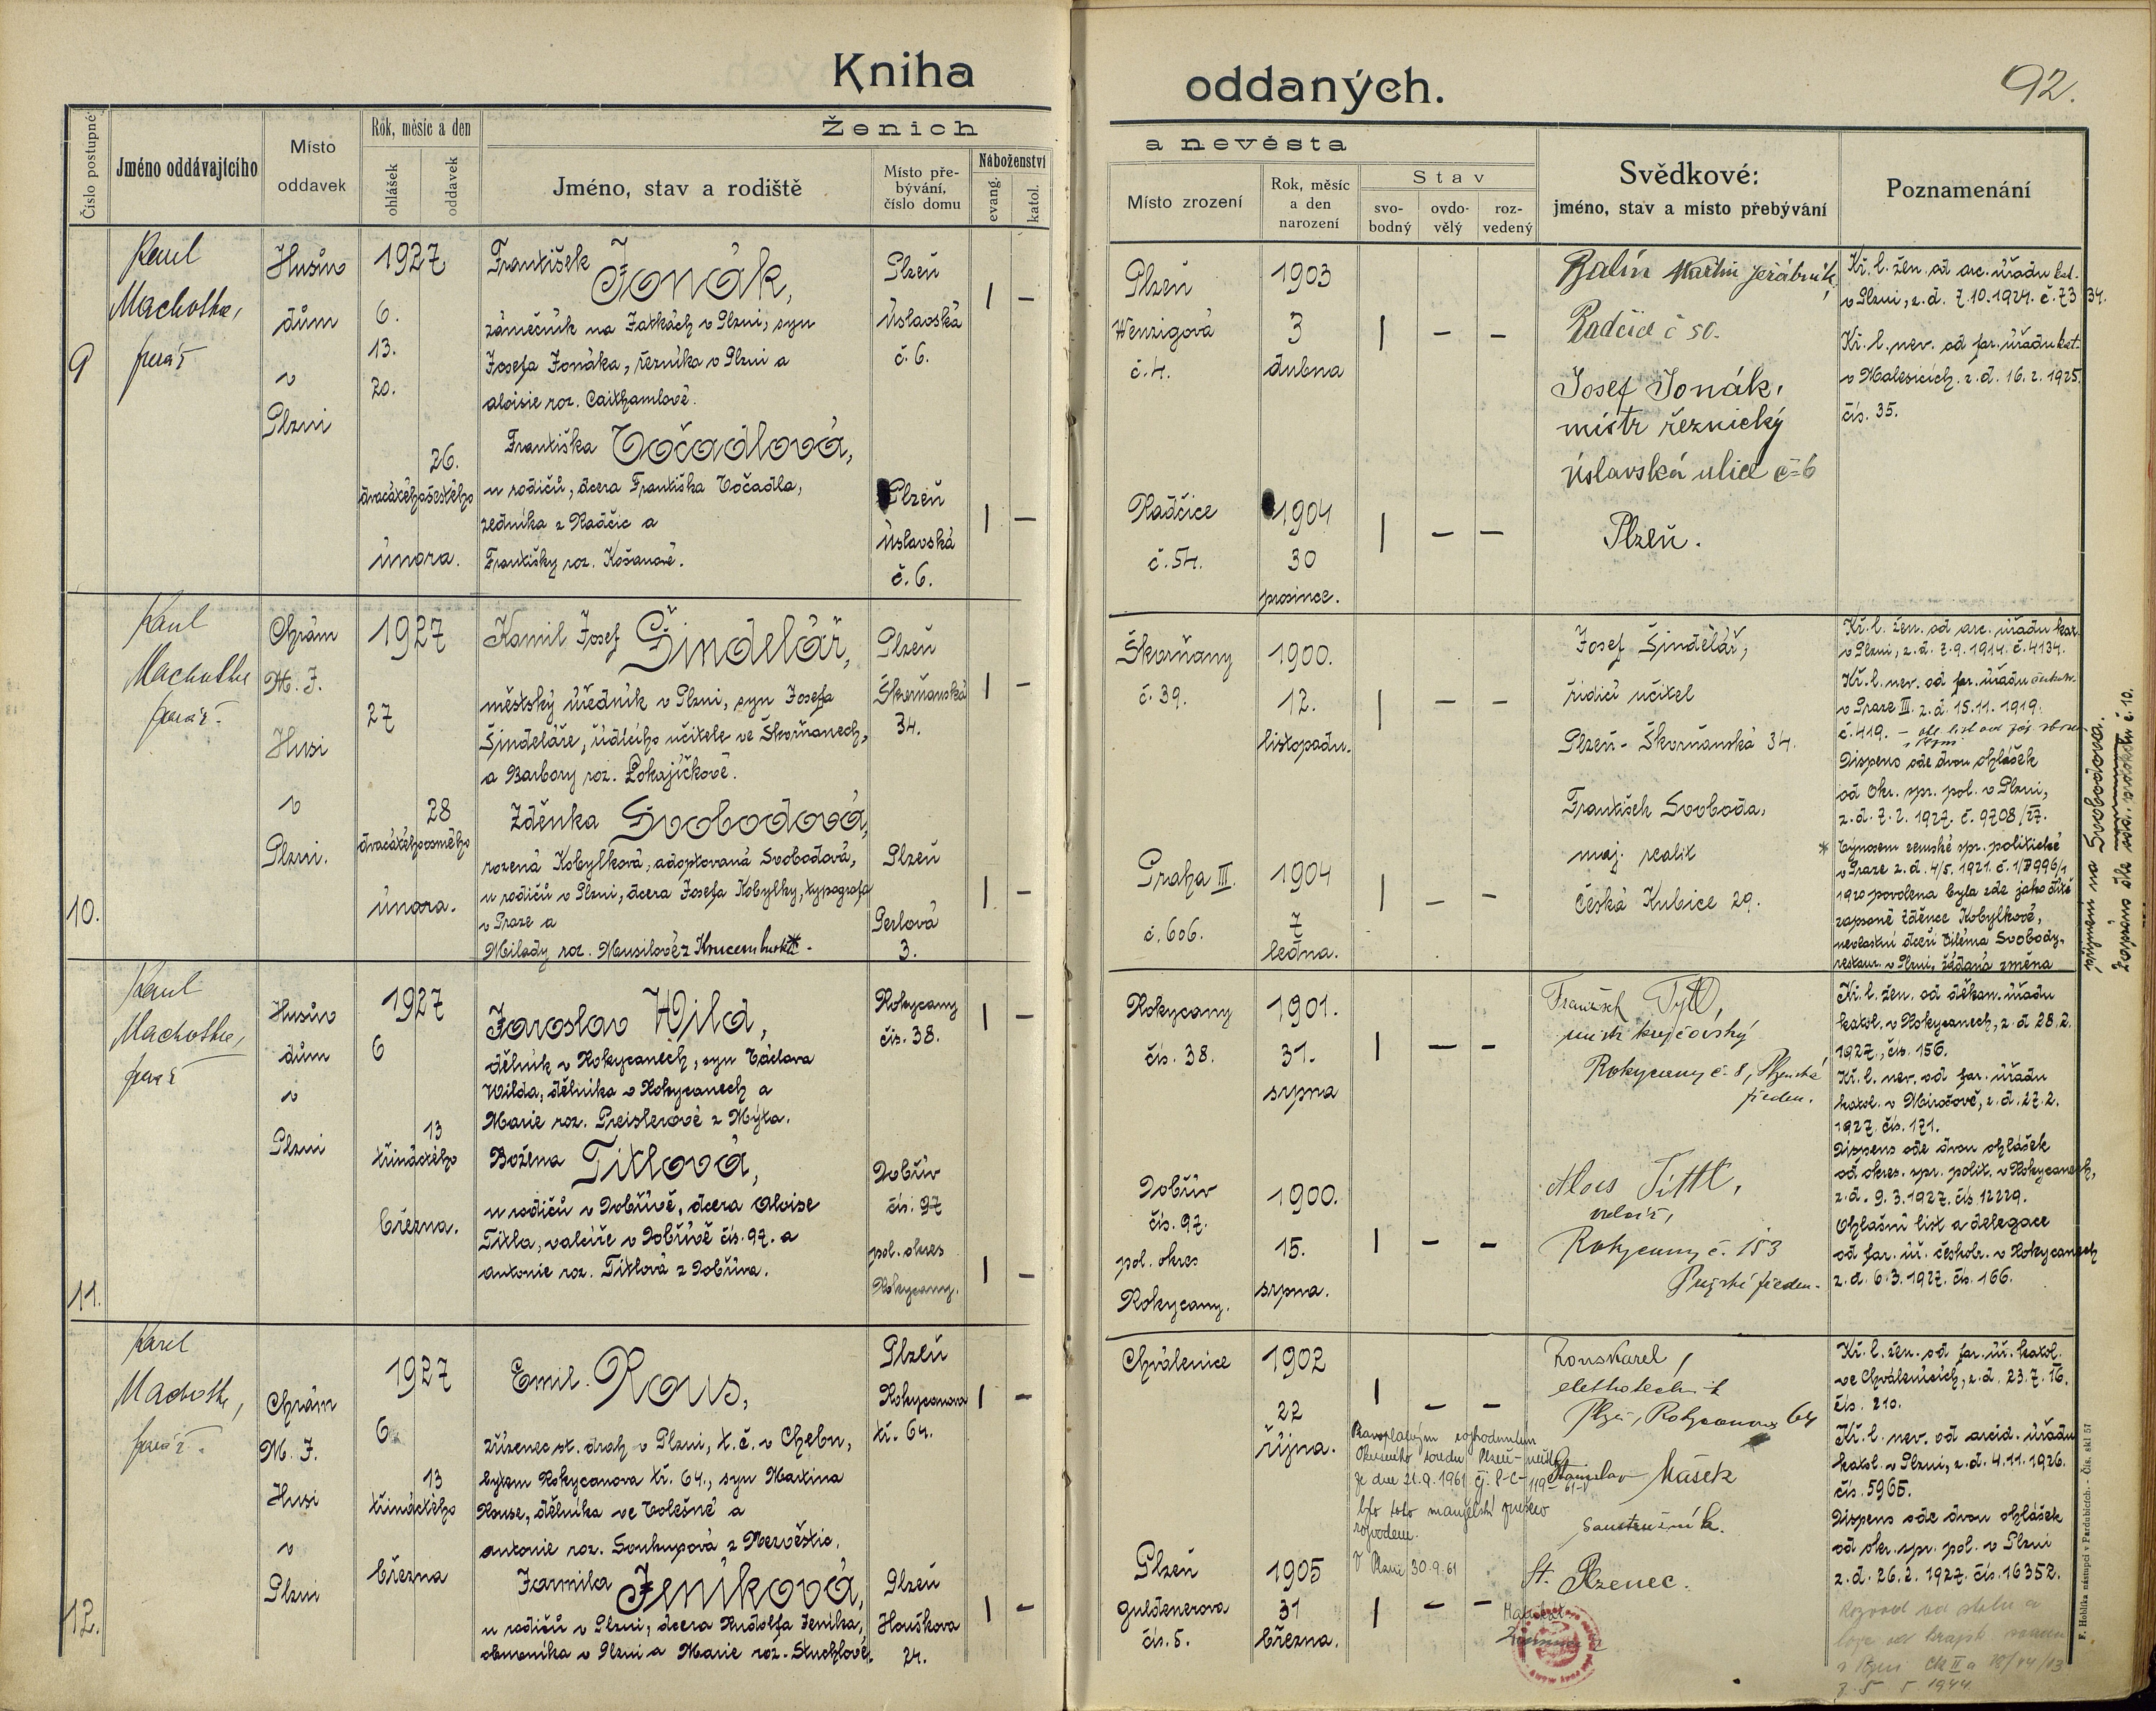 Kniha oddaných.
92.
Číslo postupné
Jméno oddávajícího
Místo
oddavek
Rok, měsíc a den
ohlášek
oddavek
Ženich
a nevěsta
Jméno, stav a rodiště
Místo pře-
bývání,
číslo domu
Náboženství
evang.
katol.
Místo zrození
Rok, měsíc
a den
narození
Stav
svo-
bodný
ovdo-
vělý
roz-
vedený
Svědkové:
jméno, stav a místo přebývání
Poznamenání
9
Karel
Machotka,
farář
Husův
dům
v
Plzni
1927
6.
13.
20.
26.
dvacátéhošestého
února.
František Jonák,
zámečník na Jatkách v Plzni, syn
Josefa Jonáka, řezníka v Plzni a
Aloisie roz. Caithamlové.
Plzeň
Úslavská
č. 6.
| –
Františka Točadlová,
u rodičů, dcera Františka Točadla,
zedníka z Radčic a
Františky roz. Košanové.
Plzeň
Úslavská
č. 6.
| –
Plzeň
Wenzigová
č. 4.
1903
3
dubna
| – –
Radčice
č. 54.
1904
30
prosince.
| – –
Balín Martin jeřábník,
Radčice č 50.
Josef Jonák,
mistr řeznický
úslavská ulice č=6
Plzeň.
Kř. l. žen. od arc. úřadu kat.
v Plzni, z. d. 7.10.1924. č. 73 34.
Kř. l. nev. od far. úřadu kat.
v Malesicích. z. d. 16. 2. 1925.
čís. 35.
10.
Karel
Machotka
farář.
Chrám
M. J.
Husi
v
Plzni.
1927
27
28
dvacátéhoosmého
února.
Kamil Josef Šindelář,
městský úředník v Plzni, syn Josefa
Šindeláře, řídícího učitele ve Škvrňanech,
a Barbory roz. Pokajíčkové.
Plzeň
Škvrňanská
34.
| –
Zděnka Svobodová,
rozená Kobylková, adoptovaná Svobodová,
u rodičů v Plzni, dcera Josefa Kobylky, typografa
v Praze a
Milady roz. Musilové z
Plzeň
Perlová
3.
| –
Škvrňany
č. 39.
1900.
12.
listopadu.
| – –
Praha III.
č. 606.
1904
7
ledna.
| – –
Josef Šindelář,
řídící učitel
Plzeň - Škvrňanská 34.
František Svoboda,
maj. realit
Česká Kubice 29.
Kř. l. žen. od arc. úřadu kat.
v Plzni, z. d. 7. 9. 1914. č. 4134.
Kř. l. nev. od far. úřadu
v Praze III. z. d. 15. 11. 1919.
č. 419.
Dispens ode dvou ohlášek
od okr. spr. pol. v Plzni,
z. d. 7. 2. 1927. č. 9708/27.
* Výnosem zemské spr. politické
v Praze z. d. 4/5. 1921.
1920 povolena byla zde jako dítě
zapsané Zděnce Kobylkové,
nevlastní dceři Viléma Svobody,
restaur. v Plzni, žádaná změna
příjmení na Svobodova.
Zapsáno dle
č. 10.
11.
Karel
Machotka,
farář
Husův
dům
v
Plzni
1927
6
13
třináctého
března.
Jaroslav Wild,
dělník v Rokycanech, syn Václava
Wilda, dělníka v Rokycanech a
Marie roz. Preislerové z Mýta.
Rokycany
čís. 38.
| –
Božena Titlová,
u rodičů v Dobřívě, dcera Aloise
Titla, valcíře v Dobřívě čís. 97. a
Antonie roz. Titlová z Dobříva.
Dobřív
čís. 97
pol. okres
Rokycany.
| –
Rokycany
čís. 38.
1901.
31.
srpna
| – –
Dobřív
čís. 97.
pol. okres
Rokycany.
1900.
15.
srpna.
| – –
František Tytl,
mistr krejčovský
Rokycany č. 8, Plzeňské
předm.
Alois Tittl,
valcíř,
Rokycany č. 153
Pražské předm.
Kř. l. žen. od děkan. úřadu
katol. v Rokycanech, z. d 28. 2.
1927, čís. 156.
Kř. l. nev. od far. úřadu
katol. v Mirošově, z. d. 27. 2.
1927. čís. 171.
Dispens ode dvou ohlášek
od okres. spr. polit. v Rokycanech,
z. d. 9. 3. 1927. čís 12229.
Ohlašní list a delegace
od far. úř. českobr. v Rokycanech
z. d. 6. 3. 1927. čís. 166.
12.
Karel
Machotka,
farář.
Chrám
M. J.
Husi
v
Plzni
1927
6
13
třináctého
března
Emil Rous,
zřízenec st. drah v Plzni, t. č. v Chebu,
bytem Rokycanova tř. 64., syn Martina
Rouse, dělníka ve Volešné a
Antonie roz. Soukupová z Nezvěstic.
Plzeň
Rokycanova
tř. 64.
| –
Jarmila Jeníková,
u rodičů v Plzni, dcera Rudolfa Jeníka,
obuvníka v Plzni a Marie roz. Stuchlové.
Plzeň
Houškova
24.
| –
Chválenice
1902
22
října.
| – –
Pravoplatným rozhodnutím
Okresního soudu Plzeň-město
ze dne 21.9.1961 čj. 8-C-119-61-
bylo toto manželství zrušeno
rozvodem.
V Plzni 30.9.61
Plzeň
Guldenerova
čís. 5.
1905
31
března.
| – –
Rous Karel,
elektrotechnik
Plzeň, Rokycanova 64
Stanislav Mašek
soustružník.
St. Plzenec.
Kř. l. žen. od far. úř. katol.
ve Chválenicích, z. d. 23. 7. 16.
čís. 210.
Kř. l. nev. od arcid. úřadu
katol. v Plzni, z. d. 4. 11. 1926.
čís. 5965.
Dispens ode dvou ohlášek
od okr. spr. pol. v Plzni
z. d. 26. 2. 1927. čís. 16352.
Rozvod od stolu a
lože od krajsk. soudu
v Plzni
1944
F. Hoblíka nástupci v Pardubicích. - Čís. skl 57